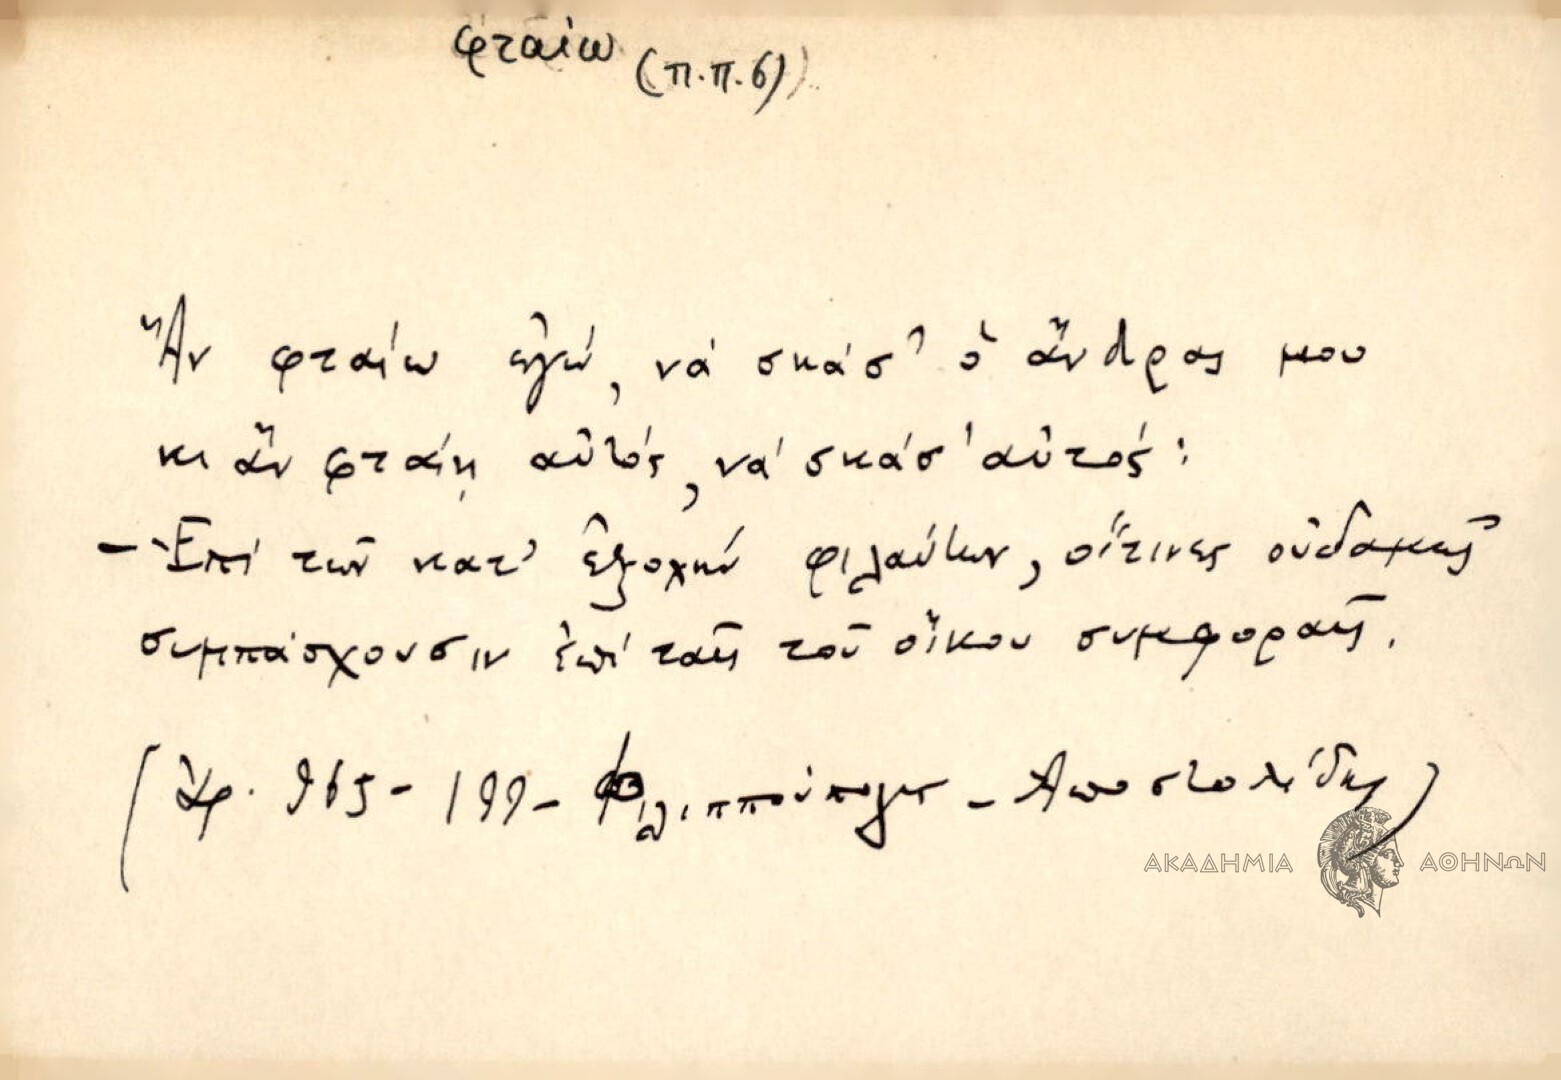 φταίω (π.π.6)
Ἂν φταίω ἐγώ, νά σκάσ' ὁ ἄνδρας μου
κι ἄν φταίη αὐτός, νά σκάσ' αὐτός:
- Ἐπί τῶν κατ' ἐξοχήν φιλαύτων, οἵτινες οὐδαμῶς
συμπάσχουσιν ἐπί ταῖς τοῦ οἴκου συμφοραῖς.
(Ἀρ. 965 - 199 - Φιλιππούπολις - Ἀποστολίδης)
ΑΚΑΔΗΜΙΑ ΑΘΗΝΩΝ